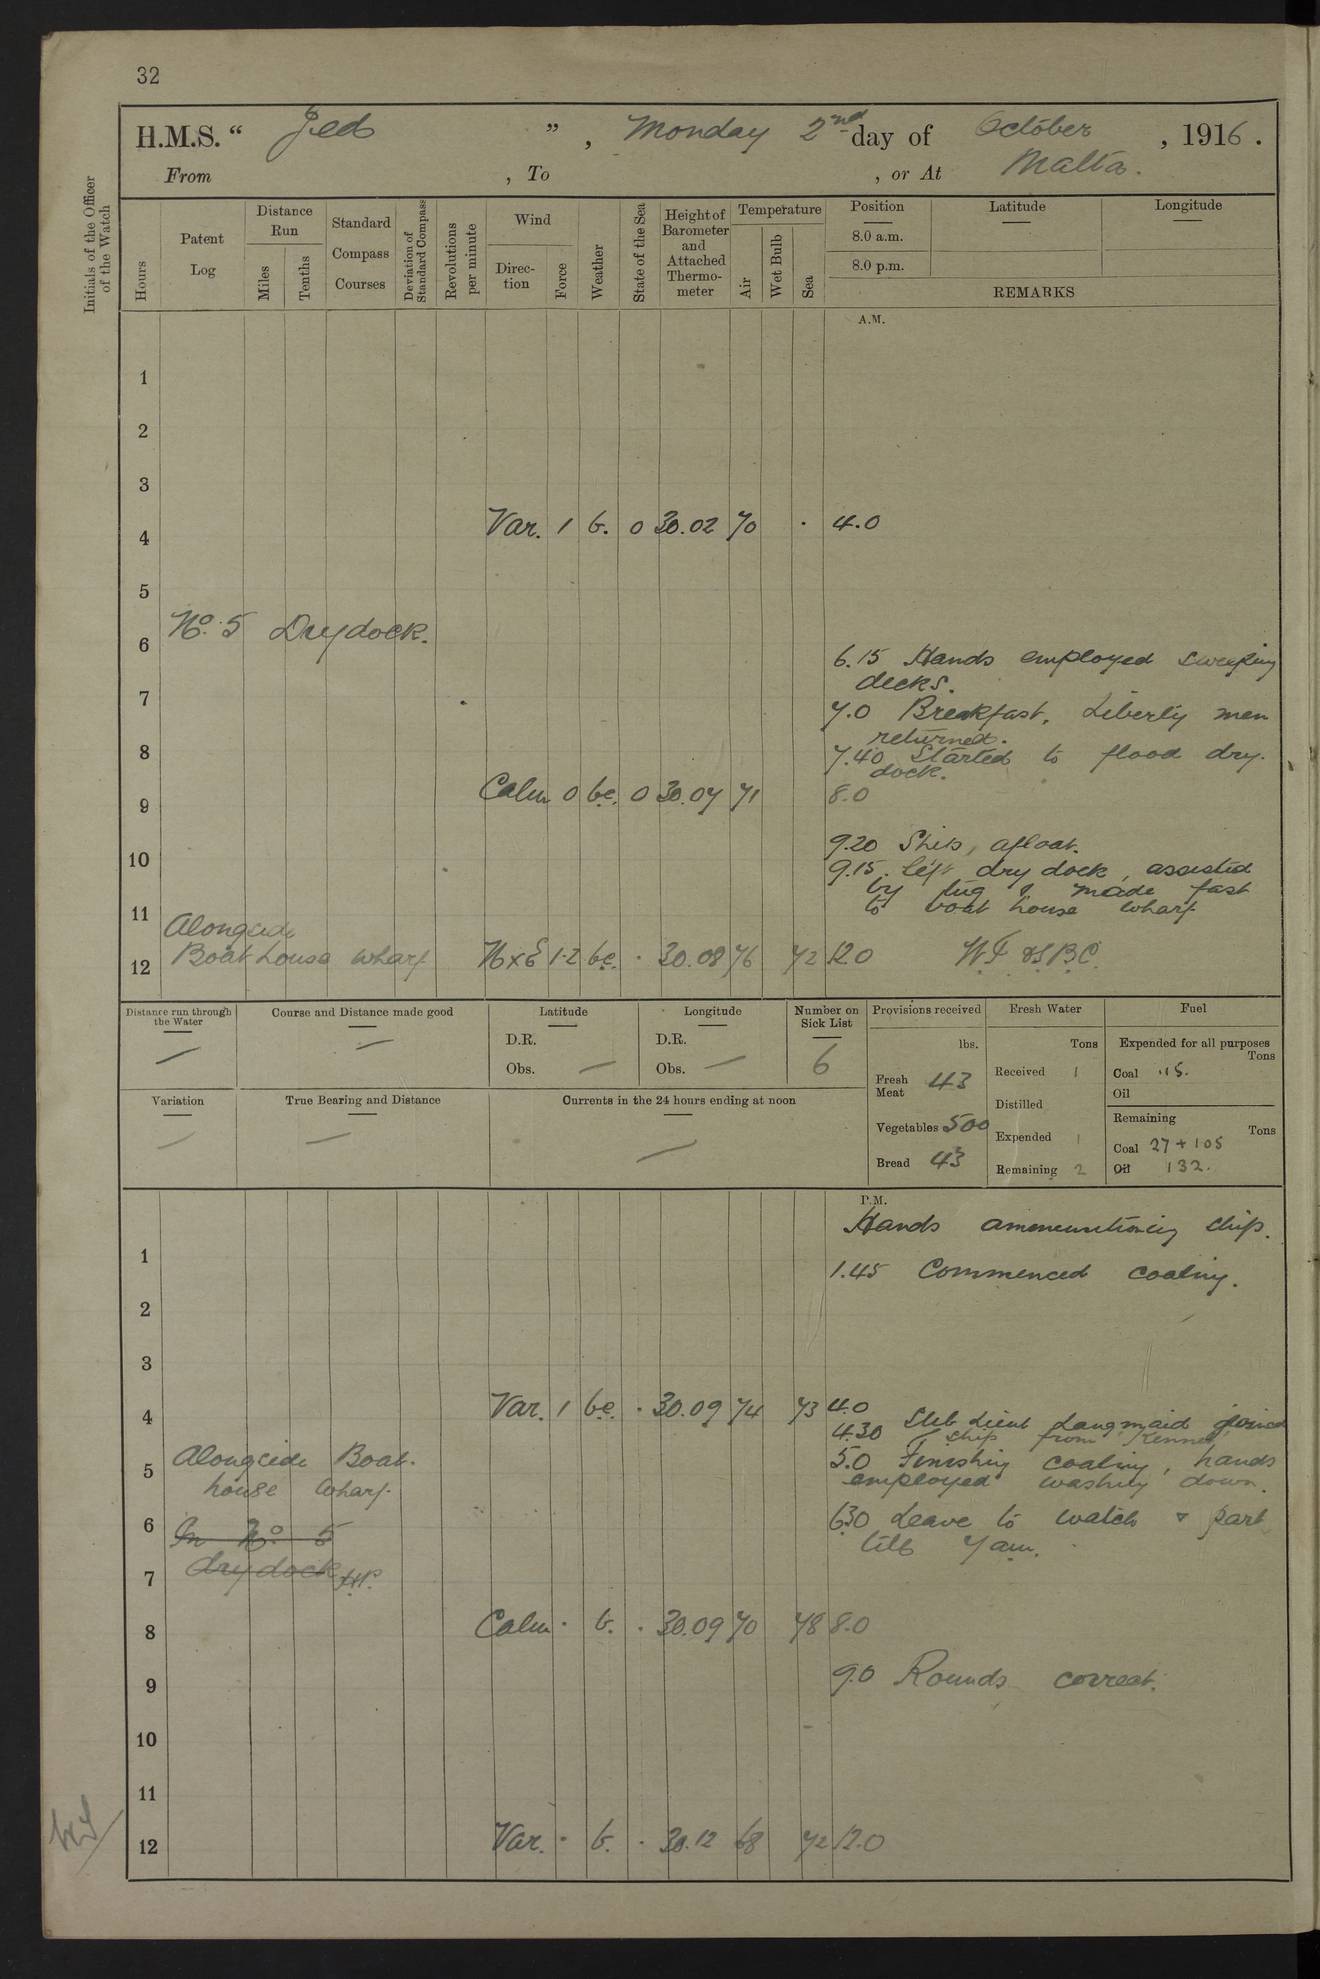 32
H.M.S. “ Jed ” , Monday 2nd day of October , 1916 .
From , To , or At Malta.
Initials of the Officer of the Watch
Hours
Patent Log
Distance Run
Miles
Tenths
Standard Compass Courses
Deviation of Standard Compass
Revolutions per minute
Wind
Direc-tion
Force
Weather
State of the Sea
Height of Barometer and Attached Thermo-meter
Temperature
Air
Wet Bulb
Sea
Position Latitude Longitude
8.0 a.m.
8.0 p.m.
REMARKS
A.M.
1
2
3
4 Var. 1 b. 0 30.02 70 . 4.0
5
6 No. 5 Drydock.
6.15 Hands employed sweeping
decks.
7
7.0 Breakfast. Liberty men
returned.
8
7.40 Started to flood dry.
dock.
9 Calm 0 bc. 0 30.07 71 8.0
9.20 Ship, afloat.
10
9.15. left dry dock, assisted
by tug & made fast
to boat house wharf
11 Alongside
12 Boathouse wharf NxE 1-2 bc. . 30.08 76 72 12.0
Distance run through the Water —
Course and Distance made good —
Latitude
D.R.
Obs. —
Longitude
D.R.
Obs. —
Number on Sick List
6
Provisions received
lbs.
Fresh Meat 43
Vegetables 500
Bread 43
Fresh Water
Tons
Received 1
Distilled
Expended 1
Remaining 2
Fuel
Expended for all purposes
Tons
Coal .15.
Oil
Remaining
Tons
Coal 27 + 105
Oil 132.
Variation —
True Bearing and Distance —
Currents in the 24 hours ending at noon —
P.M.
Hands ammunitioning ship.
1
1.45 Commenced coaling.
2
3
4 Var. 1 bc. . 30.09 74 73 4.0
4.30 Sub Lieut Langmaid joined
ship from Kennet
5 Alongside Boat.
house wharf
5.0 Finishing coaling, hands
employed washing down.
6 In No 5
drydock HP.
6.30 Leave to watch & part
till 7am.
7
8 Calm . b. . 30.09 70 78 8.0
9 9.0 Rounds correct.
10
11
12 Var. . b. . 30.12 68 72 12.0